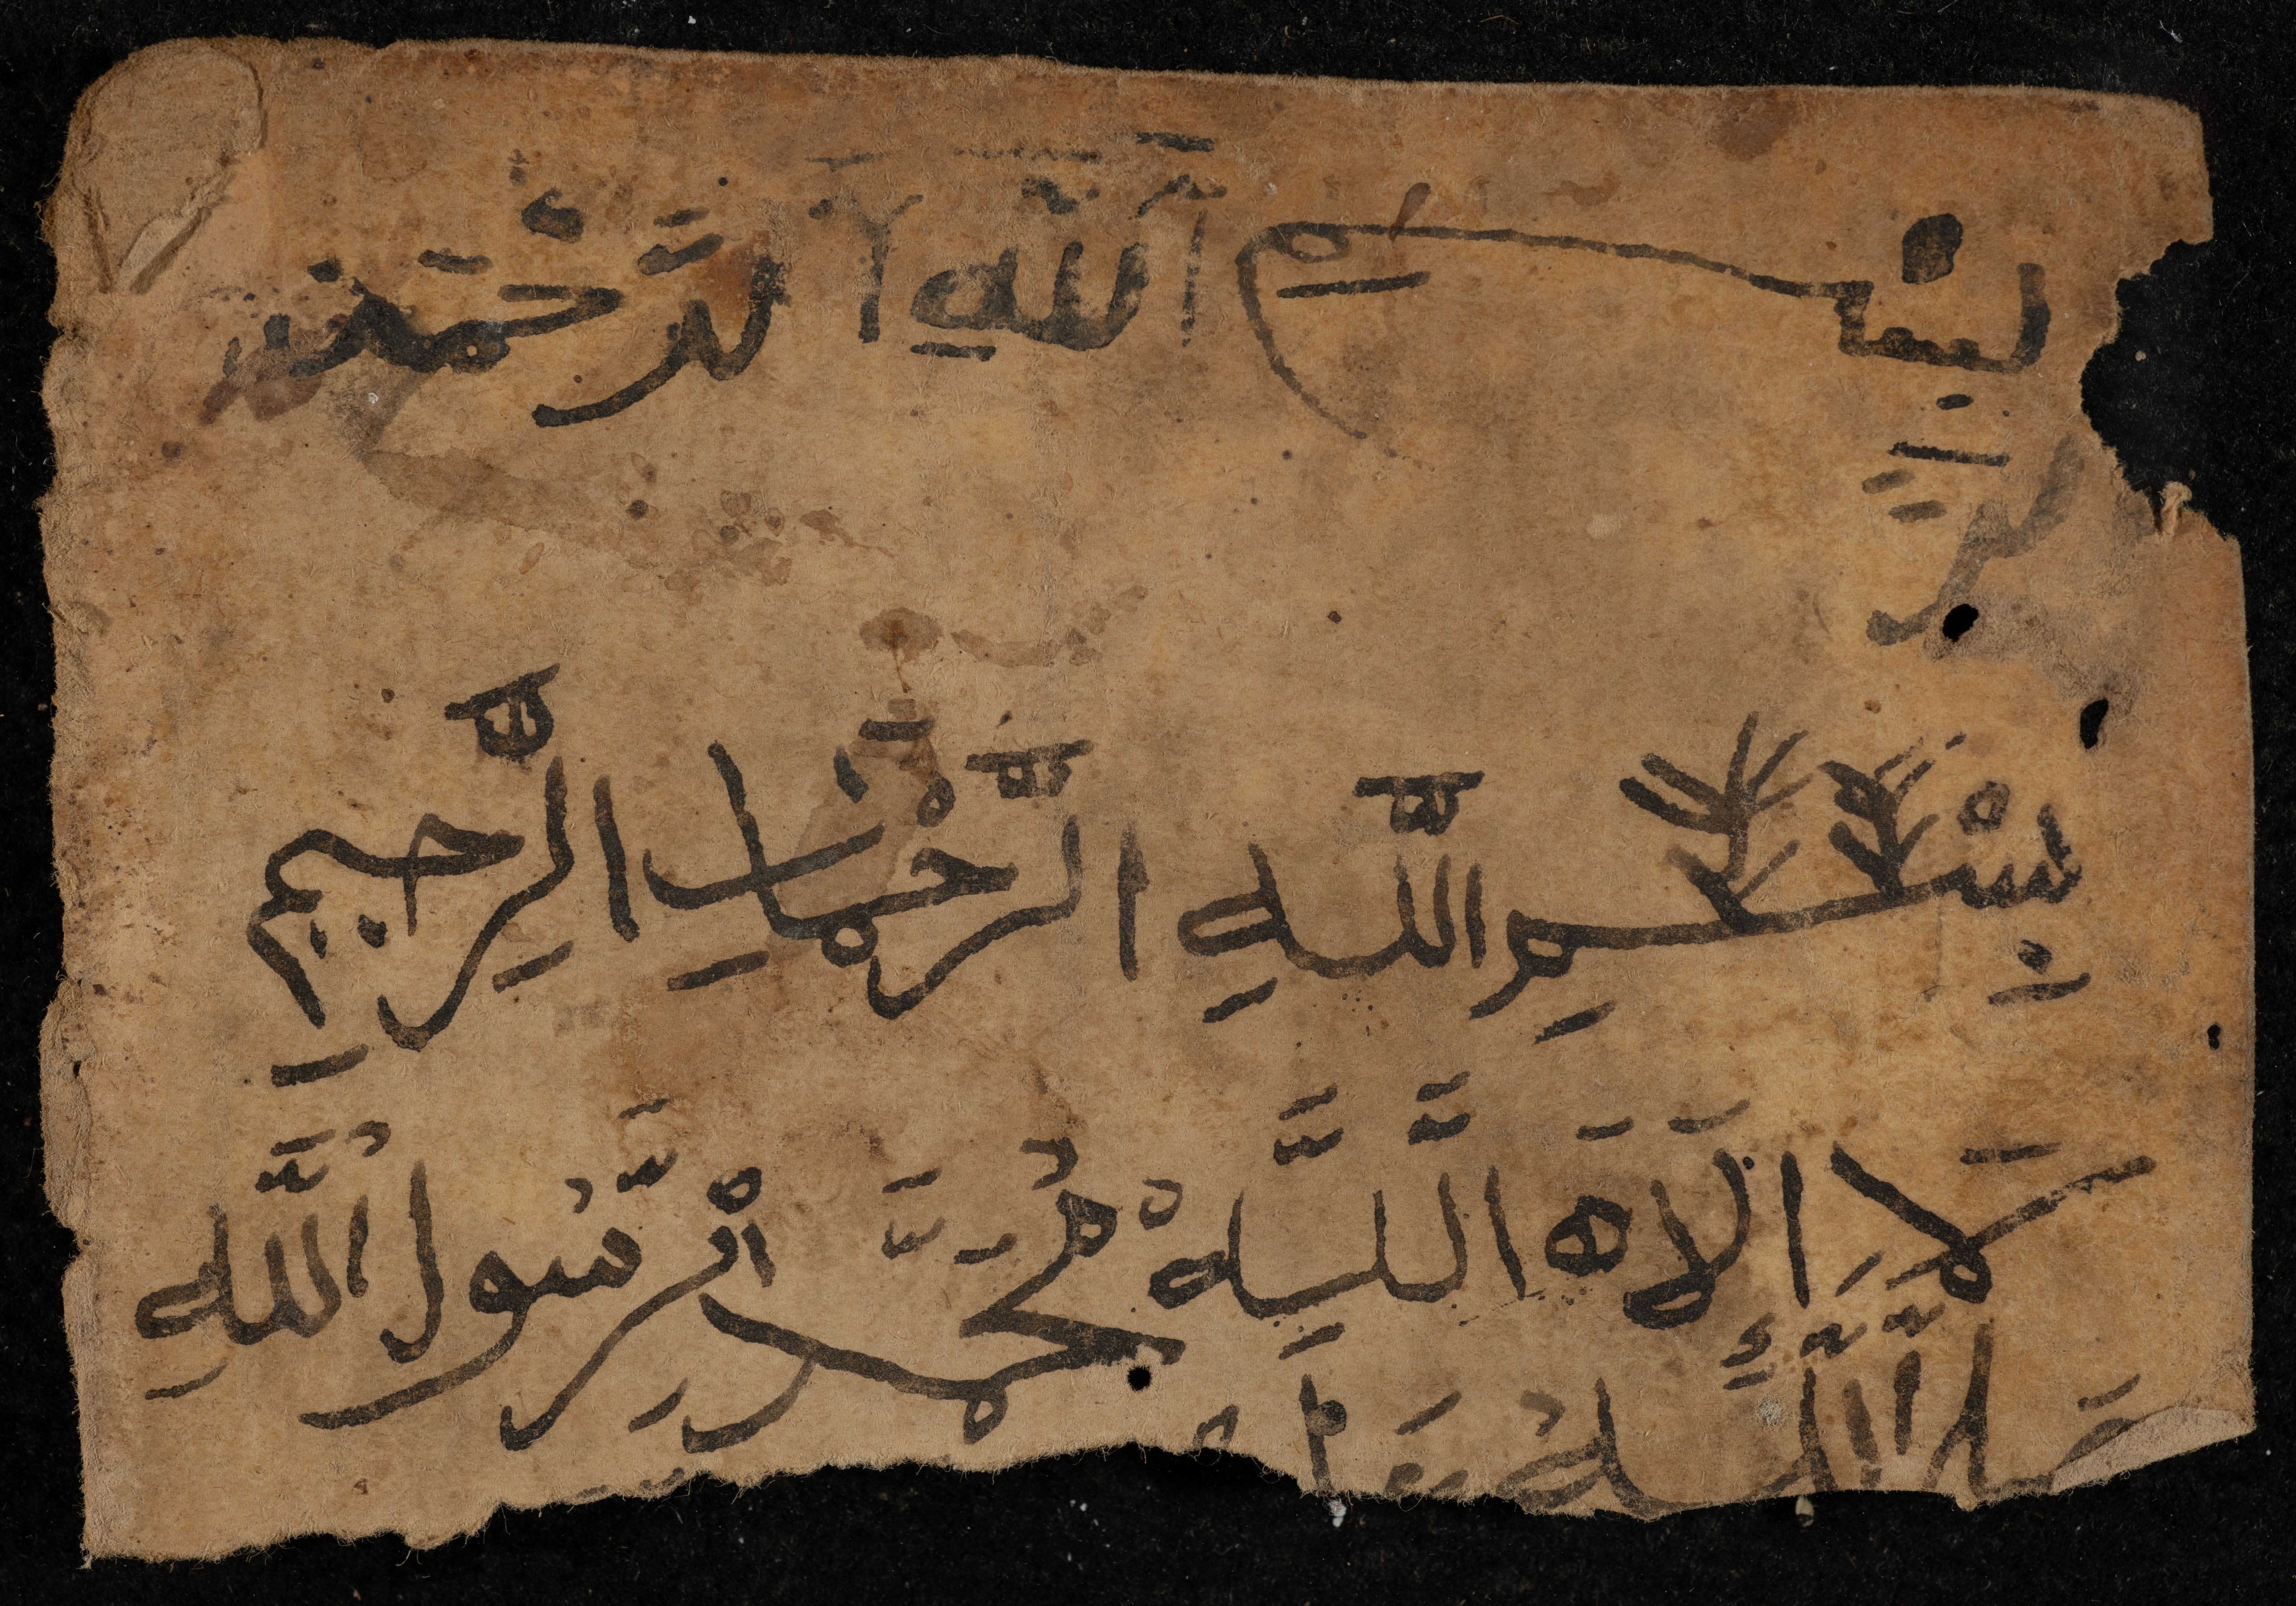 بِسْمِ اللَّهِ الرَّحْمَن
بِسْمِ اللَّهِ الرَّحْمَانِ الرَّحِيمِ
لَا اِلَاهَ اِلَّا اللَّهْ مُحَمَّد رَّسُول اللَّهِ
صَلَّ اللَّهُ